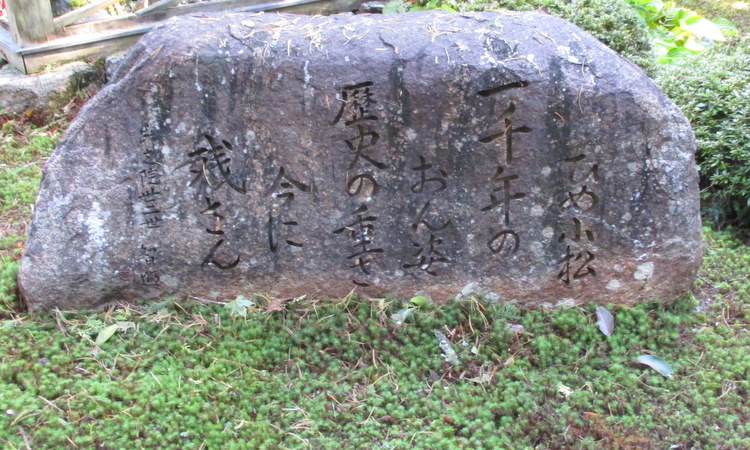 ひめ小松
一千年の
おん姿
歴史の重さ
今に
残さん